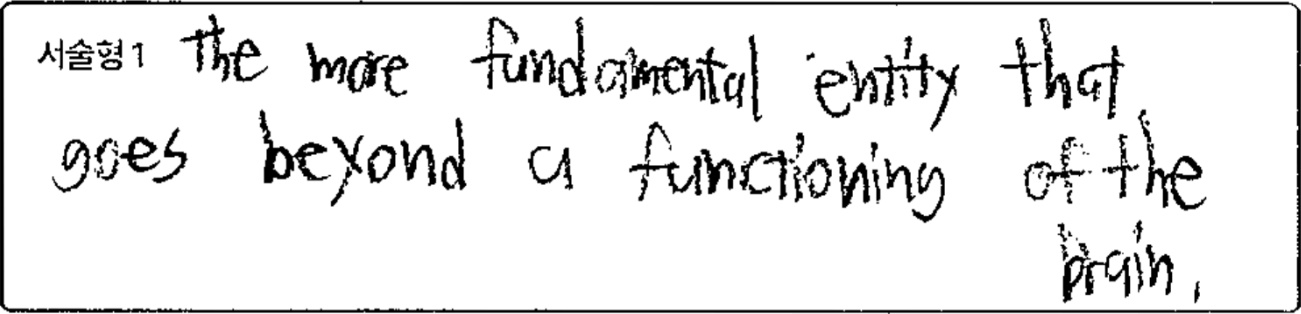 서술형 1 The more fundamental entity that
goes beyond a functioning of the
brain.